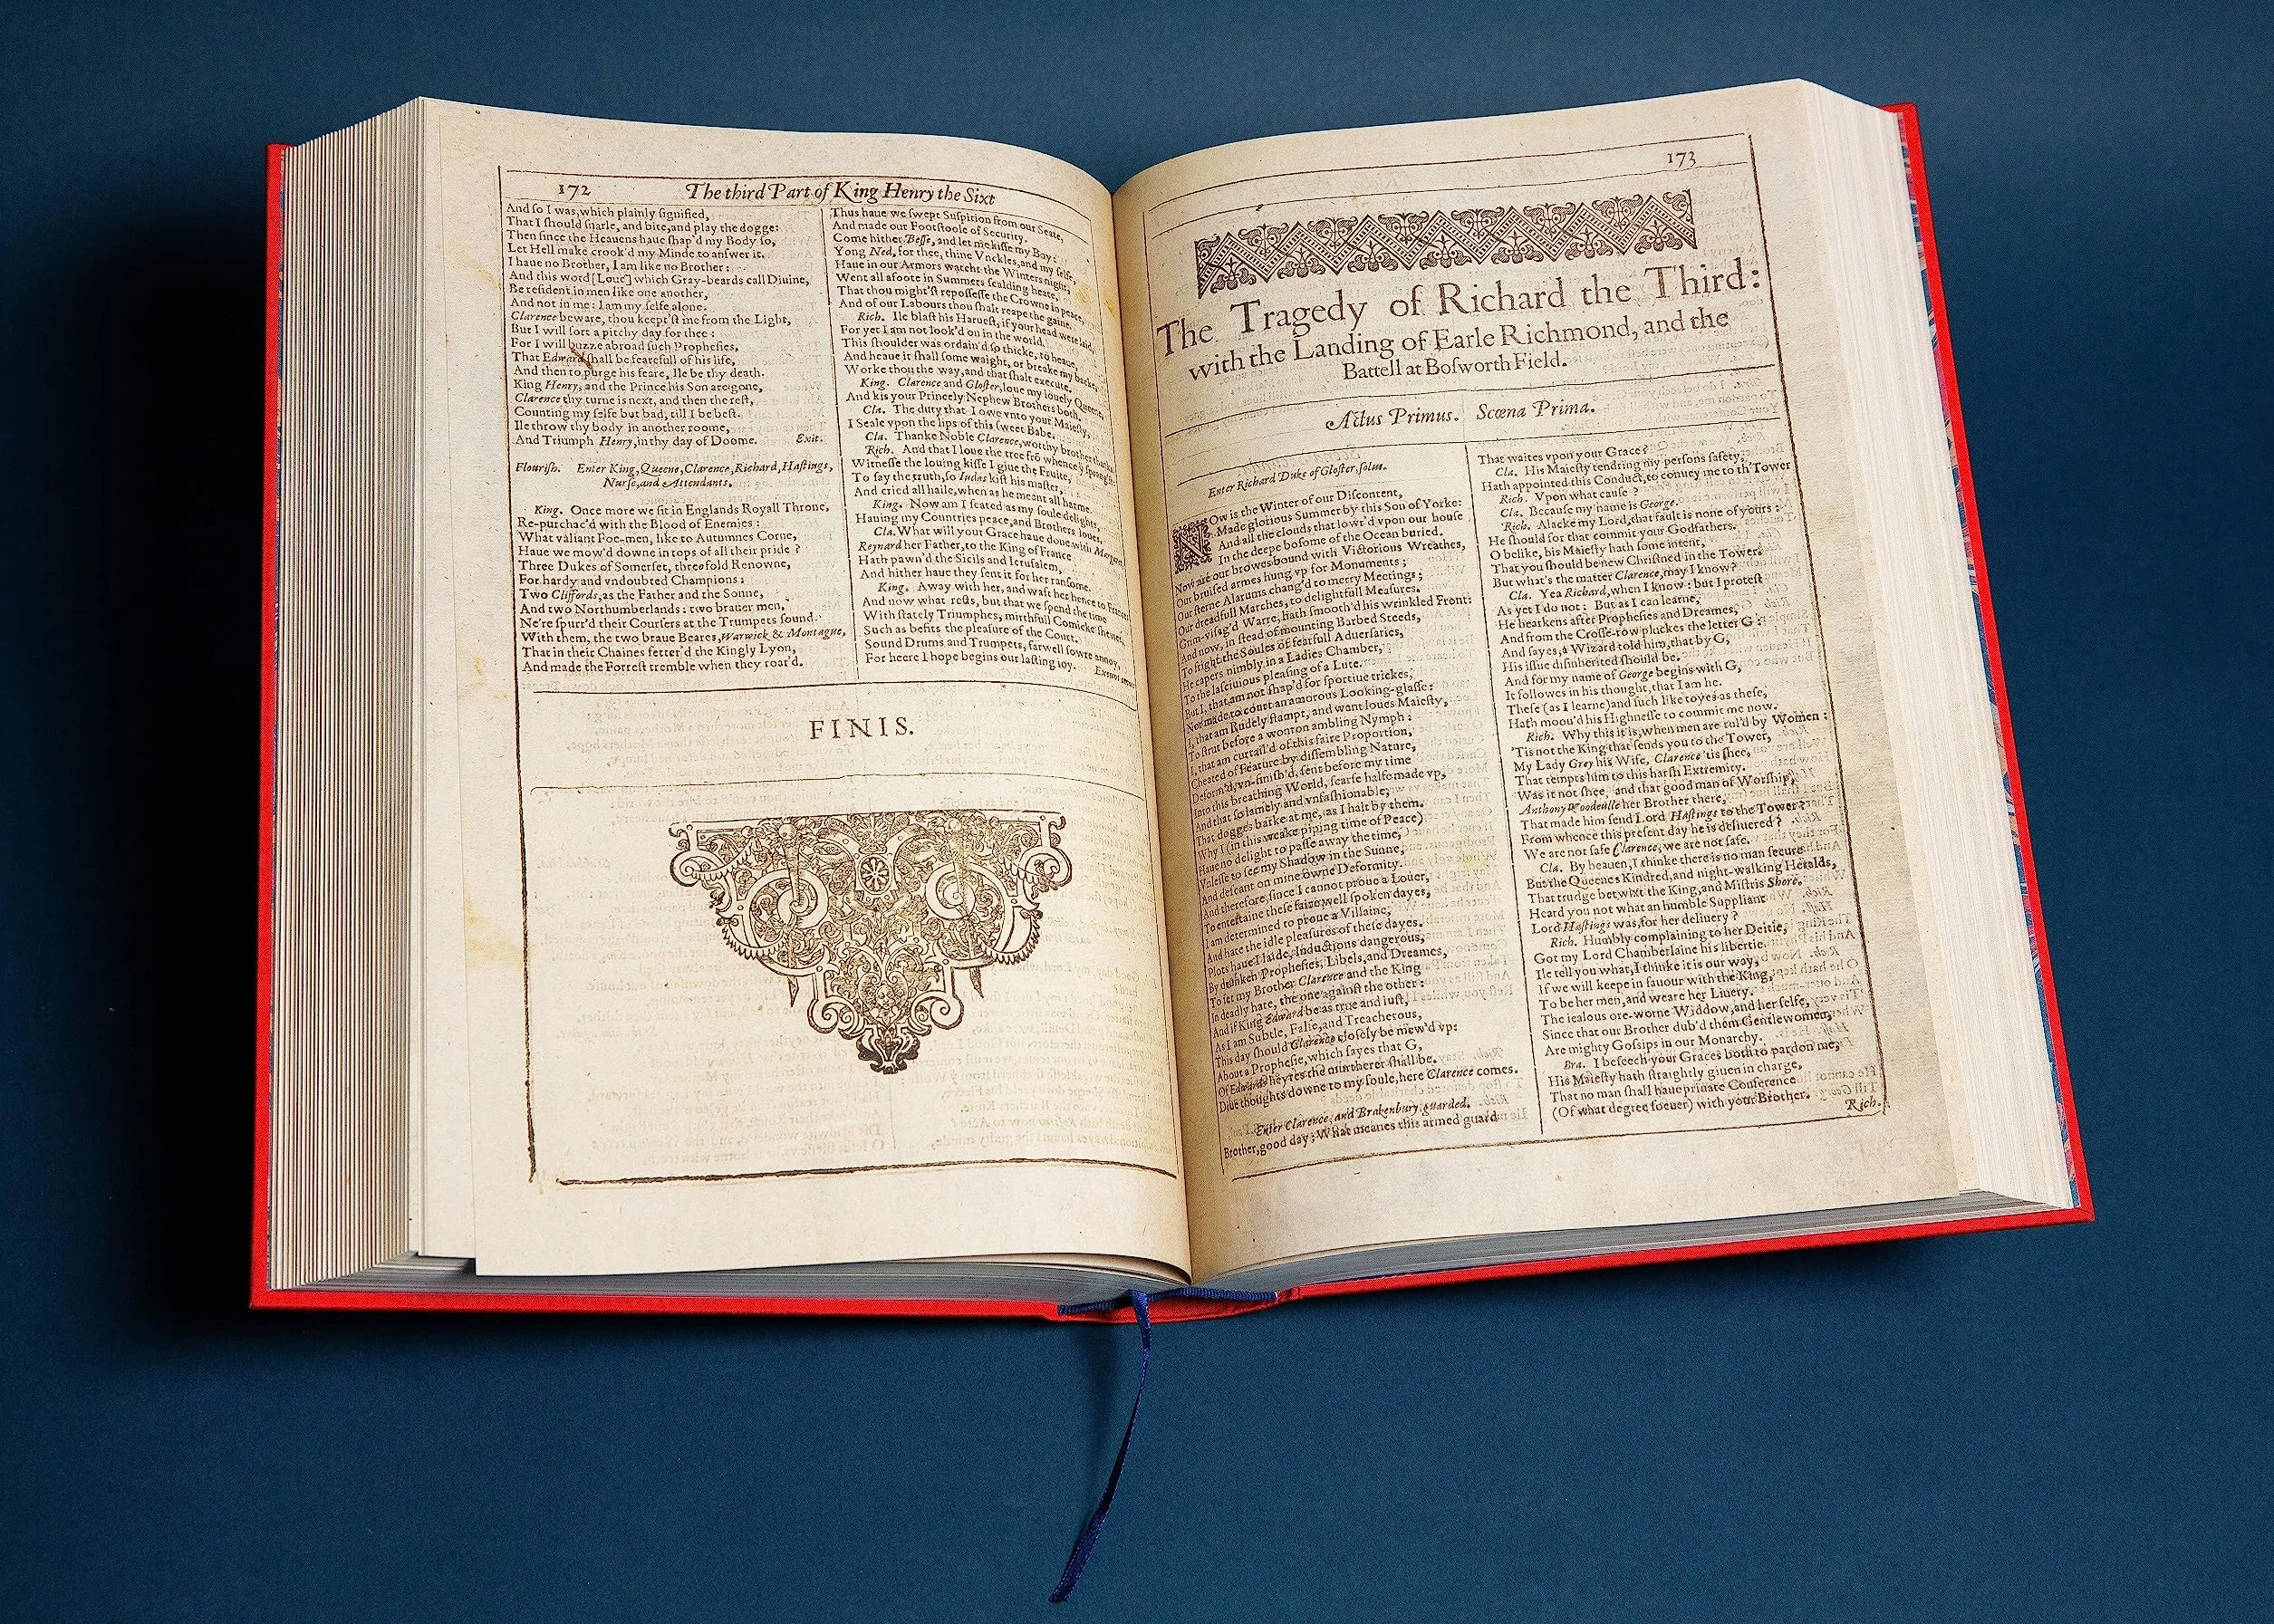 172
The third Part of King Henry the Sixt
And ſo I was, which plainly ſignified,
That I ſhould ſnarle, and bite, and play the dogge:
Then ſince the Heauens haue ſhap'd my Body ſo,
Let Hell make crook'd my Minde to anſwer it.
I haue no Brother, I am like no Brother:
And this word [Loue] which Gray-beards call Diuine,
Be reſident in men like one another,
And not in me: I am my ſelfe alone.
Clarence beware, thou keep'ſt me from the Light,
But I will ſort a pitchy day for thee:
For I will buzze abroad ſuch Propheſies,
That Edward ſhall be fearefull of his life,
And then to purge his feare, Ile be thy death.
King Henry, and the Prince his Son are gone,
Clarence thy turne is next, and then the reſt,
Counting my ſelfe but bad, till I be beſt.
Ile throw thy body in another roome,
And Triumph Henry, in thy day of Doome. Exit.
Flouriſh. Enter King, Queene, Clarence, Richard, Haſtings,
Nurſe, and Attendants.
King. Once more we ſit in Englands Royall Throne,
Re-purchac'd with the Blood of Enemies:
What valiant Foe-men, like to Autumnes Corne,
Haue we mow'd downe in tops of all their pride?
Three Dukes of Somerſet, threefold Renowne,
For hardy and vndoubted Champions:
Two Cliffords, as the Father and the Sonne,
And two Northumberlands: two brauer men,
Ne're ſpurr'd their Courſers at the Trumpets ſound.
With them, the two braue Beares, Warwick & Montague,
That in their Chaines fetter'd the Kingly Lyon,
And made the Forreſt tremble when they roar'd.
Thus haue we ſwept Suſpition from our Seate,
And made our Footſtoole of Security.
Come hither Beſſe, and let me kiſſe my Boy:
Yong Ned, for thee, thine Vnckles, and my ſelfe,
Haue in our Armors watcht the Winters night,
Went all afoote in Summers ſcalding heate,
That thou might'ſt repoſſeſſe the Crowne in peace,
And of our Labours thou ſhalt reape the gaine.
Rich. Ile blaſt his Harueſt, if your head were laid,
For yet I am not look'd on in the world.
This ſhoulder was ordain'd ſo thicke, to heaue,
And heaue it ſhall ſome waight, or breake my backe,
Worke thou the way, and that ſhalt execute.
King. Clarence and Gloſter, loue my louely Queene,
And kis your Princely Nephew Brothers both.
Cla. The duty that I owe vnto your Maieſty,
I Seale vpon the lips of this ſweet Babe.
Cla. Thanke Noble Clarence, worthy brother thanks.
Rich. And that I loue the tree frō whence ẏ ſprang'ſt:
Witneſſe the louing kiſſe I giue the Fruite,
To ſay the truth, ſo Iudas kiſt his maſter,
And cried all haile, when as he meant all harme.
King. Now am I ſeated as my ſoule delights,
Hauing my Countries peace, and Brothers loues.
Cla. What will your Grace haue done with Margaret,
Reynard her Father, to the King of France
Hath pawn'd the Sicils and Ieruſalem,
And hither haue they ſent it for her ranſome.
King. Away with her, and waft her hence to France:
And now what reſts, but that we ſpend the time
With ſtately Triumphes, mirthfull Comicke ſhewes,
Such as befits the pleaſure of the Court.
Sound Drums and Trumpets, farwell ſowre annoy,
For heere I hope begins our laſting ioy. Exeunt omnes
FINIS.
173
The Tragedy of Richard the Third:
with the Landing of Earle Richmond, and the
Battell at Boſworth Field.
Actus Primus. Scœna Prima.
Enter Richard Duke of Gloſter, ſolus.
NOw is the Winter of our Diſcontent,
Made glorious Summer by this Son of Yorke:
And all the clouds that lowr'd vpon our houſe
In the deepe boſome of the Ocean buried.
Now are our browes bound with Victorious Wreathes,
Our bruiſed armes hung vp for Monuments;
Our ſterne Alarums chang'd to merry Meetings;
Our dreadfull Marches, to delightfull Meaſures.
Grim-viſag'd Warre, hath ſmooth'd his wrinkled Front:
And now, in ſtead of mounting Barbed Steeds,
To fright the Soules of fearfull Aduerſaries,
He capers nimbly in a Ladies Chamber,
To the laſciuious pleaſing of a Lute.
But I, that am not ſhap'd for ſportiue trickes,
Nor made to court an amorous Looking-glaſſe:
I, that am Rudely ſtampt, and want loues Maieſty,
To ſtrut before a wonton ambling Nymph:
I, that am curtail'd of this faire Proportion,
Cheated of Feature by diſſembling Nature,
Deform'd, vn-finiſh'd, ſent before my time
Into this breathing World, ſcarſe halfe made vp,
And that ſo lamely and vnfaſhionable,
That dogges barke at me, as I halt by them.
Why I (in this weake piping time of Peace)
Haue no delight to paſſe away the time,
Vnleſſe to ſee my Shadow in the Sunne,
And deſcant on mine owne Deformity.
And therefore, ſince I cannot proue a Louer,
To entertaine theſe faire well ſpoken dayes,
I am determined to proue a Villaine,
And hate the idle pleaſures of theſe dayes.
Plots haue I laide, Inductions dangerous,
By drunken Propheſies, Libels, and Dreames,
To ſet my Brother Clarence and the King
In deadly hate, the one againſt the other:
And if King Edward be as true and iuſt,
As I am Subtle, Falſe, and Treacherous,
This day ſhould Clarence cloſely be mew'd vp:
About a Propheſie, which ſayes that G,
Of Edwards heyres the murtherer ſhall be.
Diue thoughts downe to my ſoule, here Clarence comes.
Enter Clarence, and Brakenbury, guarded.
Brother, good day: What meanes this armed guard
That waites vpon your Grace?
Cla. His Maieſty tendring my perſons ſafety,
Hath appointed this Conduct, to conuey me to th'Tower
Rich. Vpon what cauſe?
Cla. Becauſe my name is George.
Rich. Alacke my Lord, that fault is none of yours:
He ſhould for that commit your Godfathers.
O belike, his Maieſty hath ſome intent,
That you ſhould be new Chriſtned in the Tower.
But what's the matter Clarence, may I know?
Cla. Yea Richard, when I know: but I proteſt
As yet I do not: But as I can learne,
He hearkens after Propheſies and Dreames,
And from the Croſſe-row pluckes the letter G:
And ſayes, a Wizard told him, that by G,
His iſſue diſinherited ſhould be.
And for my name of George begins with G,
It followes in his thought, that I am he.
Theſe (as I learne) and ſuch like toyes as theſe,
Hath moou'd his Highneſſe to commit me now.
Rich. Why this it is, when men are rul'd by Women:
'Tis not the King that ſends you to the Tower,
My Lady Grey his Wife, Clarence 'tis ſhee,
That tempts him to this harſh Extremity.
Was it not ſhee, and that good man of Worſhip,
Anthony Woodeulle her Brother there,
That made him ſend Lord Haſtings to the Tower?
From whence this preſent day he is deliuered?
We are not ſafe Clarence, we are not ſafe.
Cla. By heauen, I thinke there is no man ſecure
But the Queenes Kindred, and night-walking Heralds,
That trudge betwixt the King, and Miſtris Shore.
Heard you not what an humble Suppliant
Lord Haſtings was, for her deliuery?
Rich. Humbly complaining to her Deitie,
Got my Lord Chamberlaine his libertie.
Ile tell you what, I thinke it is our way,
If we will keepe in fauour with the King,
To be her men, and weare her Liuery.
The iealous ore-worne Widdow, and her ſelfe,
Since that our Brother dub'd them Gentlewomen,
Are mighty Goſſips in our Monarchy.
Bra. I beſeech your Graces both to pardon me,
His Maieſty hath ſtraightly giuen in charge,
That no man ſhall haue priuate Conference
(Of what degree ſoeuer) with your Brother.
Rich.